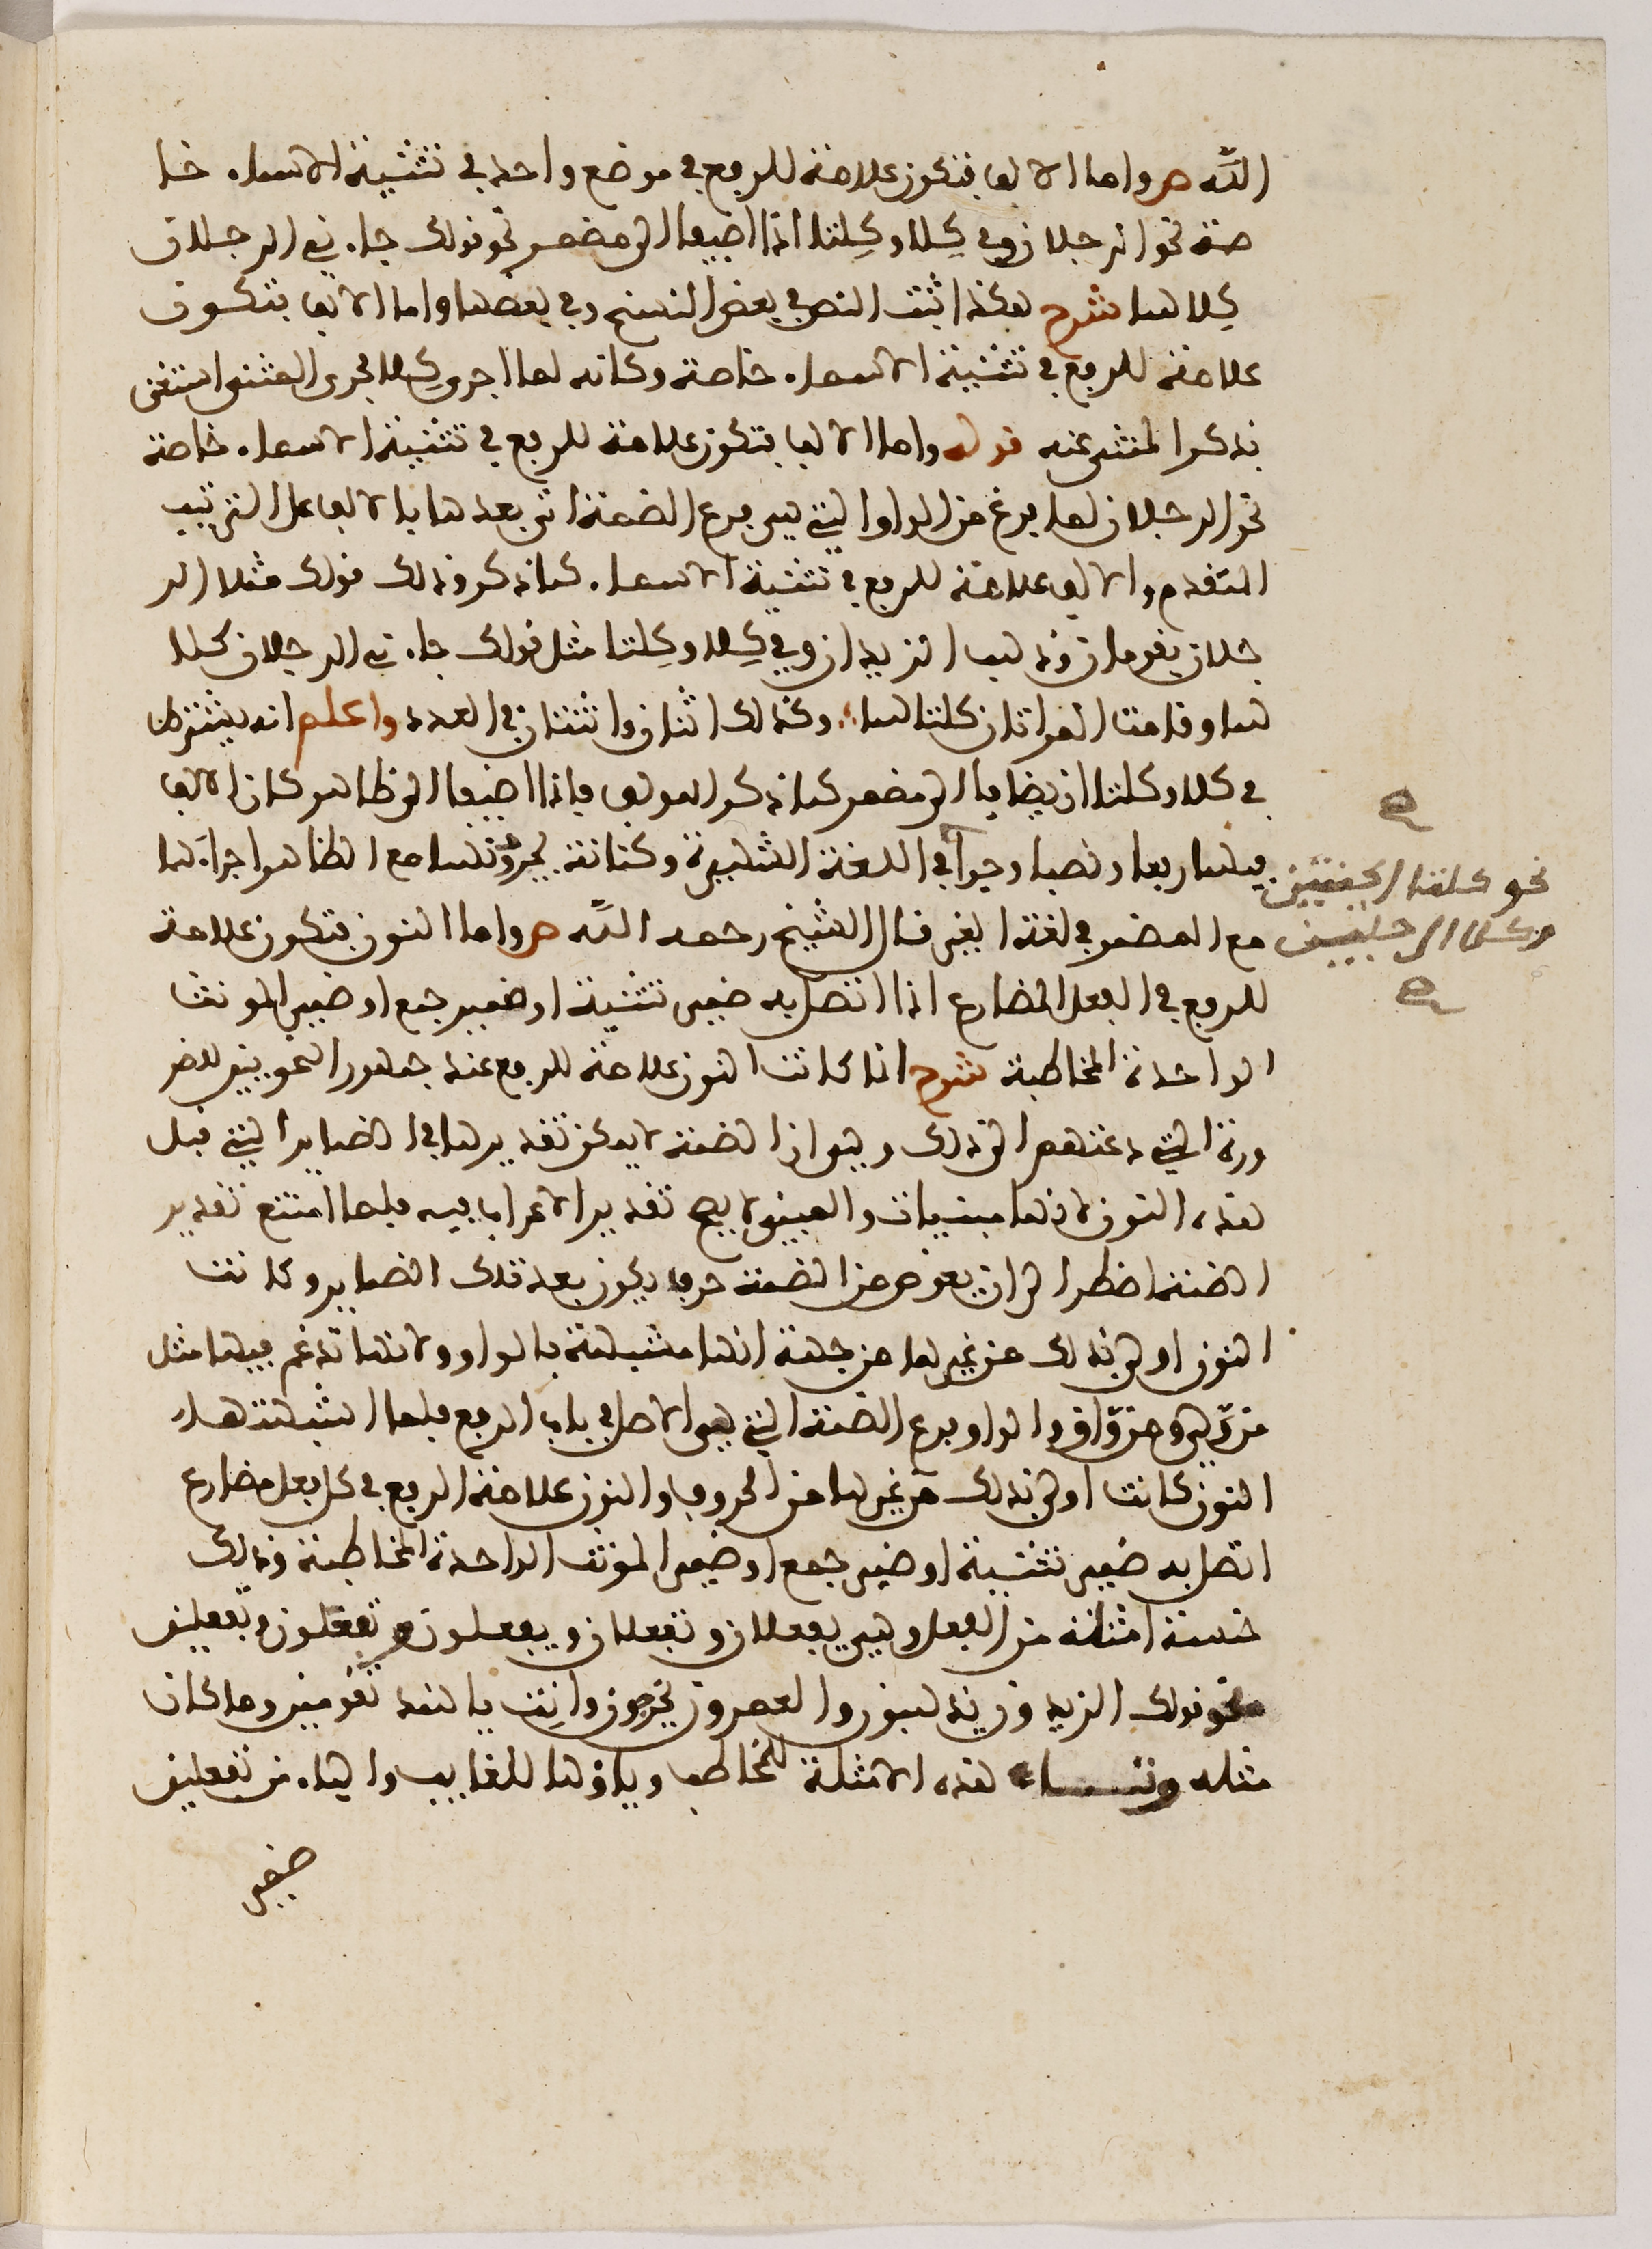 الله ص واما الالف فتكون علامة للرفع في موضع واحد في تثنية الاسماء خا
صة نحو الرجلان وفي كِلا وكِلتا اذا اضيفا الى مضمر نحو قولك جاءني الرجلان
كِلاهما شرح هكذا ثبت النص في بعض النسخ وفي بعضها واما الالف فتكون
علامة للرفع في تثنية الاسماء خاصة وكانه لما اجرى كِلا مجرى المثنى استغنى
بذكر المثنى عنه قوله واما الالف فتكون علامة للرفع في تثنية الاسماء خاصة
نحو الرجلان لما فرغ من الواو التي هي فرع الضمة اتى بعدها بالالف على الترتيب
المتقدم والالف علامة للرفع في تثنية الاسماء كما ذكر وذلك قولك مثلا الر
جلان يقومان وذهب الزيدان وفي كِلا وكِلتا مثل قولك جاءني الرجلان كلا
هما وقامت المراتان كلتاهما وكذلك اثنان واثنتان في العدد واعلم انه يشترط
في كلا وكلتا ان يضافا الى مضمر كما ذكر المولف فاذا اضيفا الى ظاهر كان الالف
فيهما رفعا ونصبا وجرا في اللغة الشهيرة وكنانة يجرونهما مع الظاهر اجراءهما
نحو كلتا الجنتين
وكلا الرجلين
مع المضمر في لغة الغير قال الشيخ رحمه الله ص واما النون فتكون علامة
للرفع في الفعل المضارع اذا اتصل به ضمير تثنية او ضمير جمع او ضمير المونث
الواحدة المخاطبة شرح انما كانت النون علامة للرفع عند جمهور النحويين للضر
ورة التي دعتهم الى ذلك وهو ان الضمة لا يمكن تقديرها في الضماير التي قبل
هذه النون لانها مبنيات والمبني لا يصح تقدير الاعراب فيه فلما امتنع تقدير
الضمة اضطر الى ان يعوض من الضمة حرف يكون بعد تلك الضماير وكانت
النون اولى بذلك من غيرها من جهة انها مشبهة بالواو ولانها تدغم فيها مثل
من وّلى ومن وّاق والواو فرع الضمة التي هي الاصل في باب الرفع فلما اشبهتها
النون كانت اولى بذلك من غيرها من الحروف والنون علامة الرفع في كل فعل مضارع
اتصل به ضمير تثنية او ضمير جمع او ضمير المونث الواحدة المخاطبة وذلك
خمسة امثلة من الفعل وهي يفعلان وتفعلان ويفعلون وتفعلون وتفعلين
نحو قولك الزيدون يذهبون والعمرون يخرجون وانت يا هند تقومين وما كان
مثله وتاء هذه الامثلة للمخاطب وياؤها للغايب والياء من تفعلين
ضمير